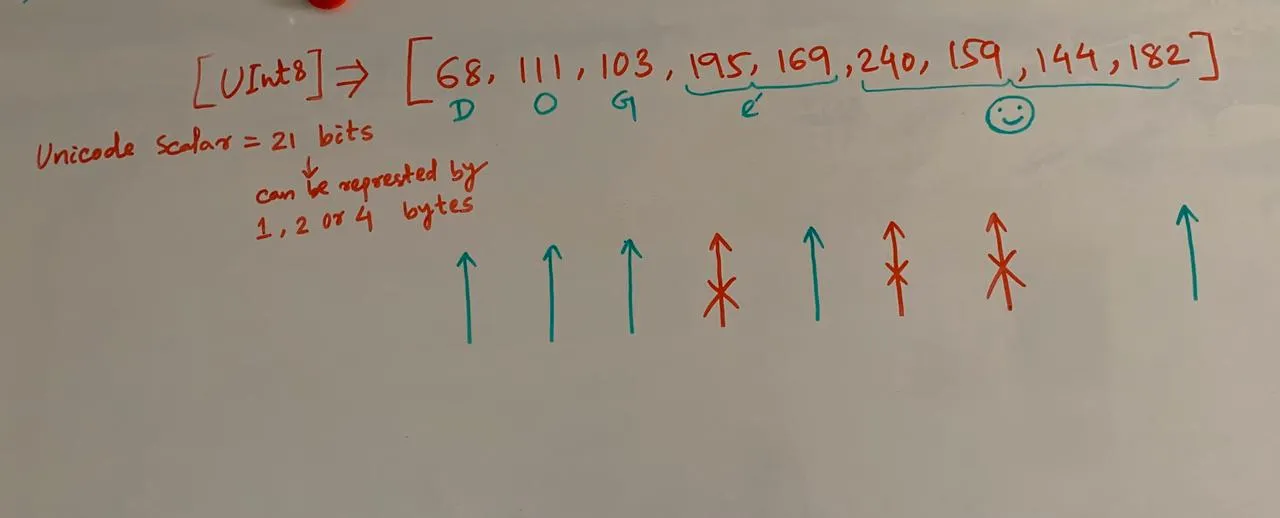 [UInt8] ⇒ [68, 111, 103, 195, 169, 240, 159, 144, 182]
D O G é
Unicode Scalar = 21 bits
can be represted by
1, 2 or 4 bytes